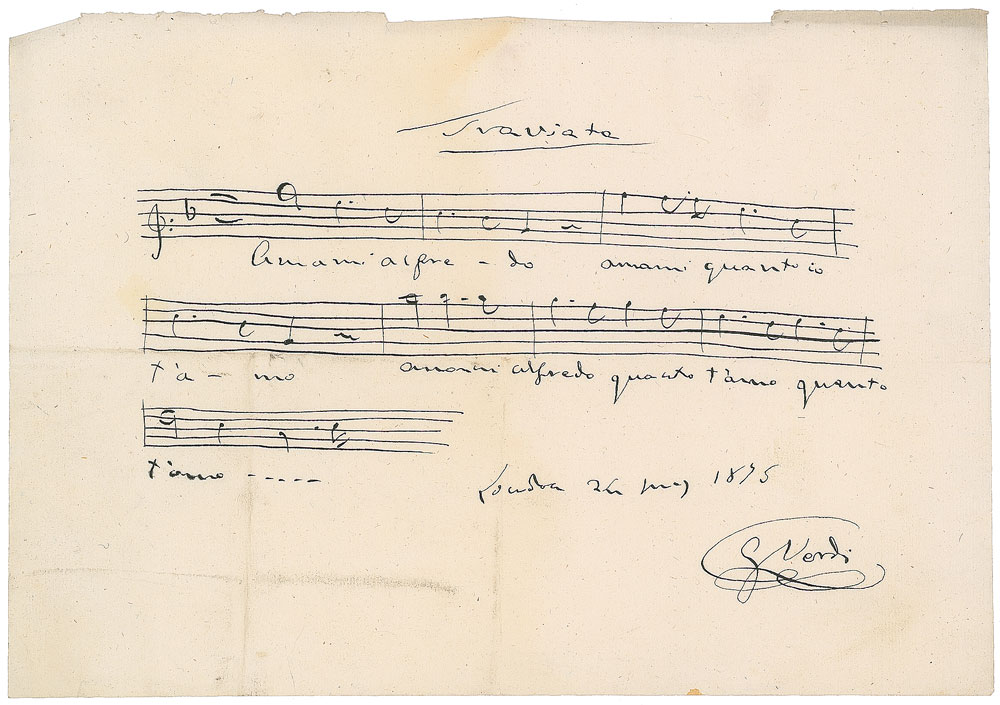 Traviata
Amami alfre - do amami quant io
t'a - mo amami alfredo quanto t'amo quanto
t'amo -----
Londra 1875
G Verdi